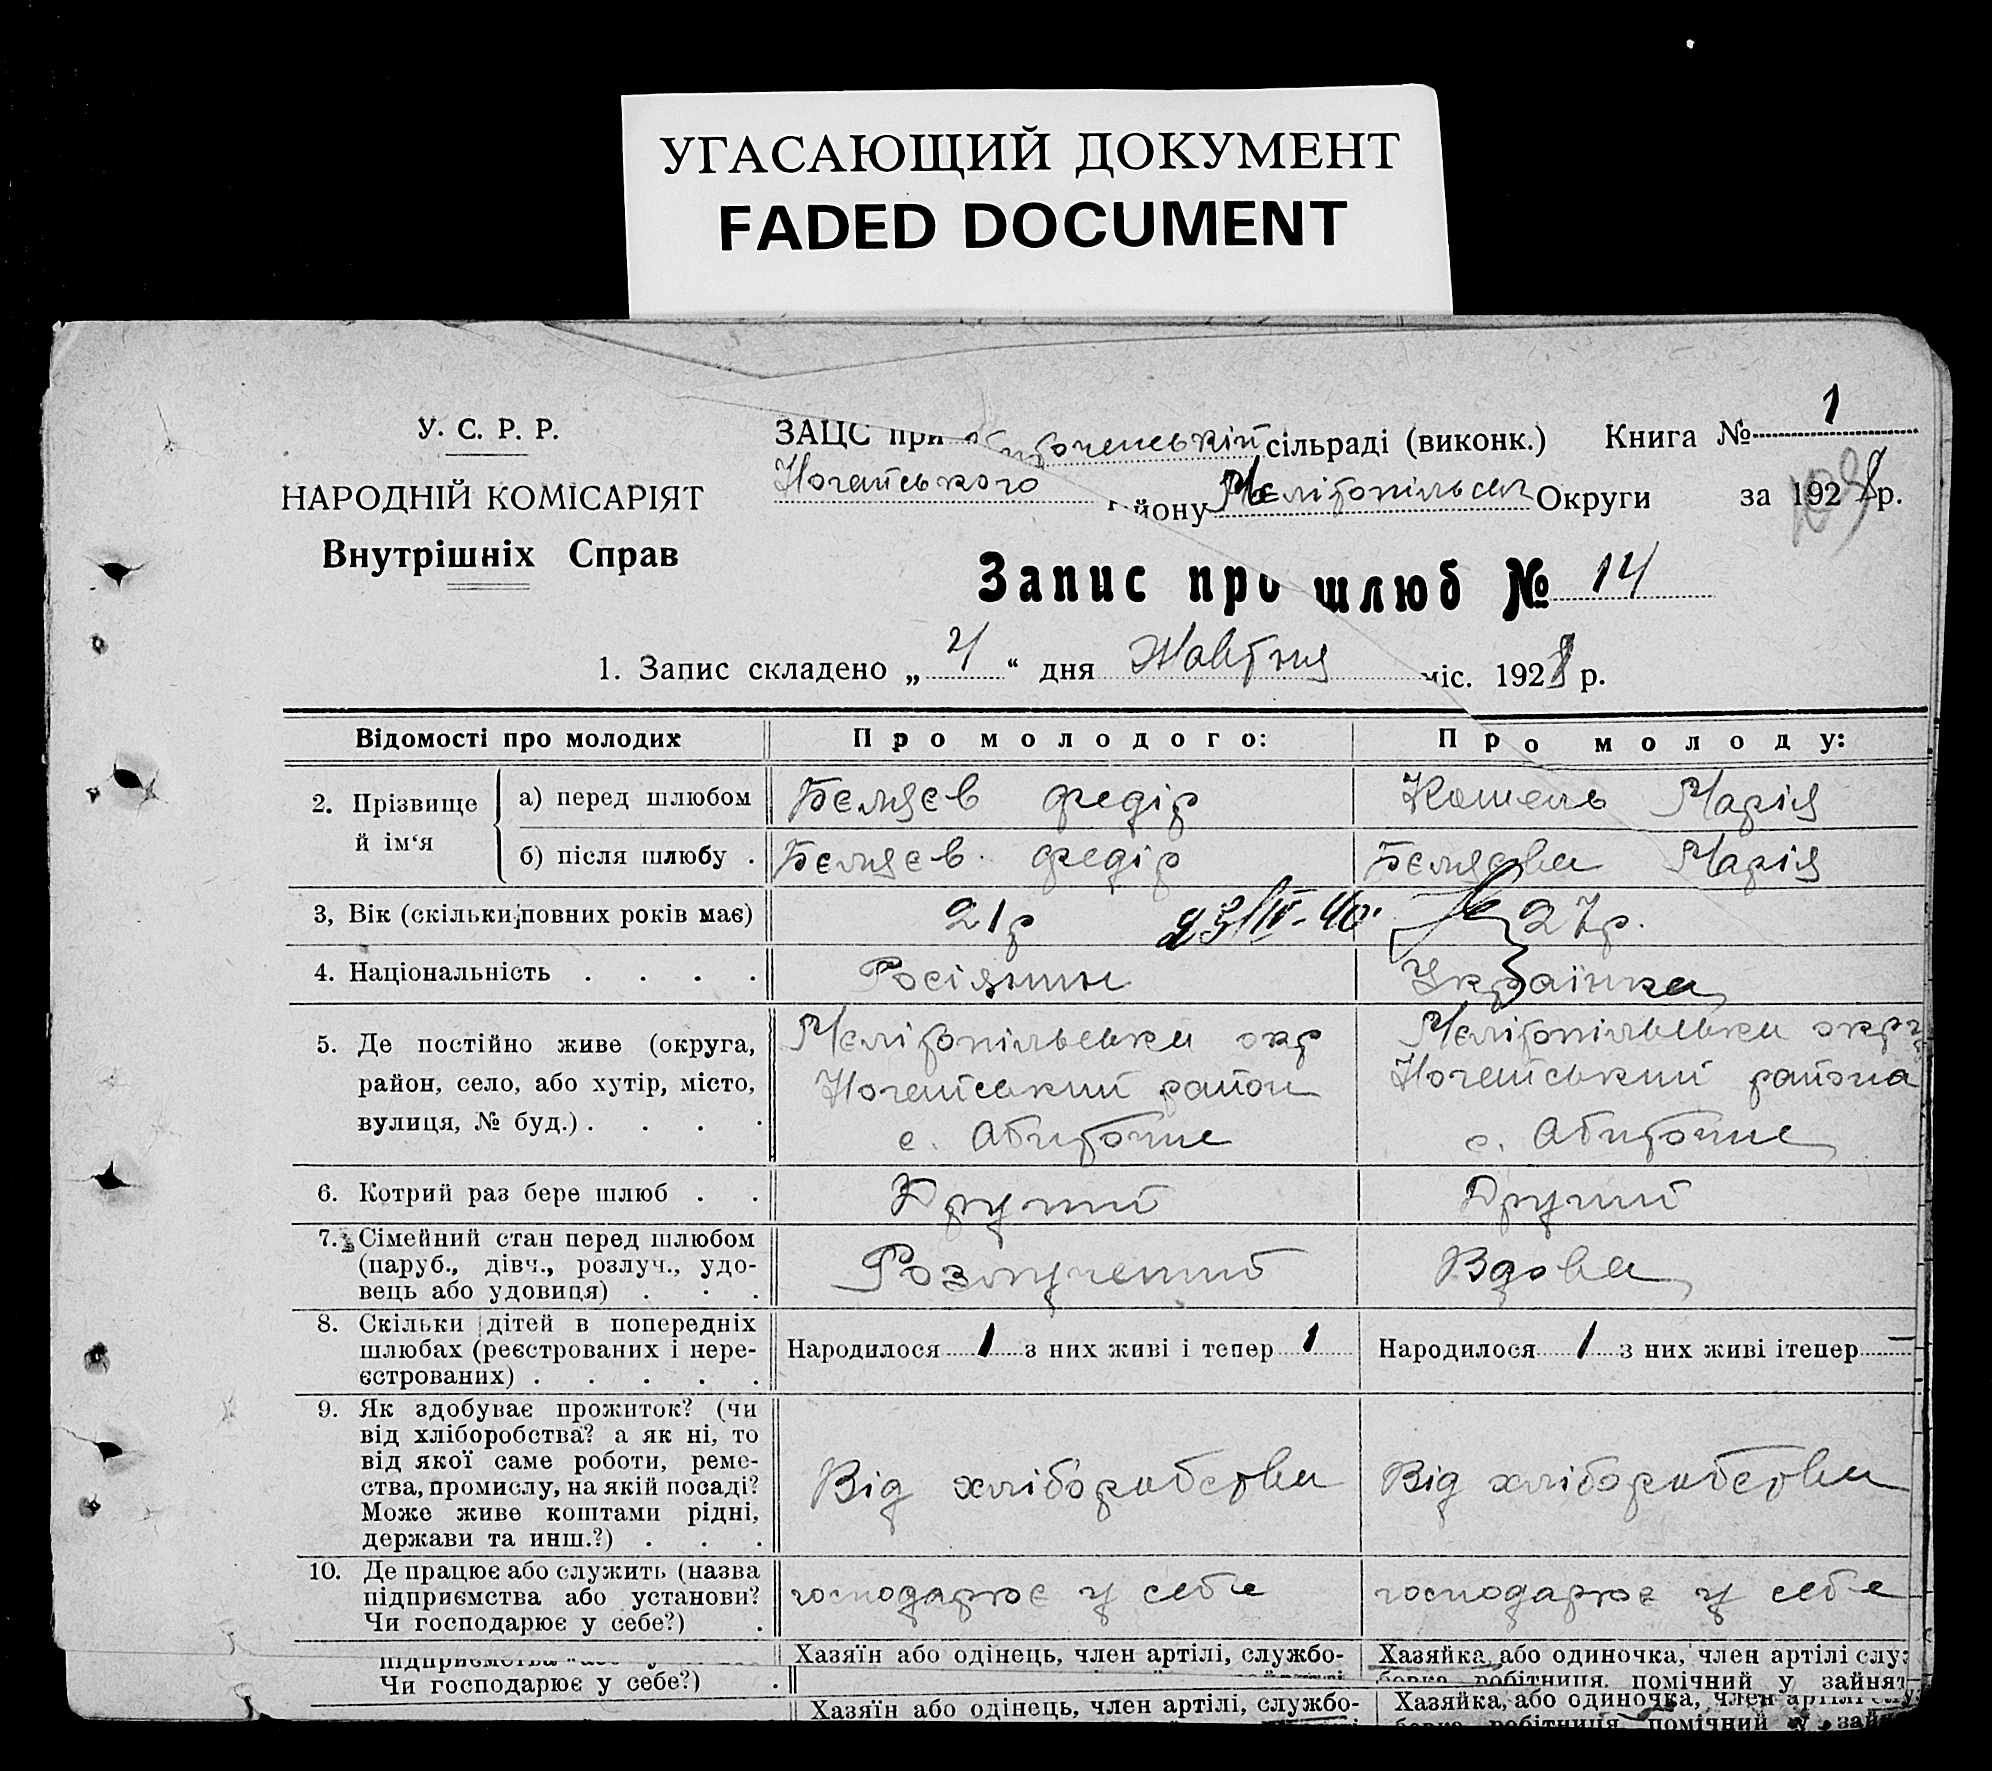 УГАСАЮЩИЙ ДОКУМЕНТ
FADED DOCUMENT
У. С. Р. Р.
НАРОДНІЙ КОМІСАРІЯТ
Внутрішніх Справ
ЗАЦС при сільраді (виконк.) Книга № 1
Ногайського йону Мелітопільськ Округи за 1928 р.
Запис про шлюб № 14
1. Запис складено „ 4 “ дня Жовтня міс. 1928 р.
Відомості про молодих
Про молодого:
Про молоду:
2. Прізвище й ім‘я
а) перед шлюбом
Бєляєв Федір
Кошель Марія
б) після шлюбу .
Бєляєв Федір
Бєляєва Марія
3, Вік (скільки повних років має)
21р
23/IV-40.
27р.
4. Національність . . . .
Росіянин
Українка
5. Де постійно живе (округа,
район, село, або хутір, місто,
вулиця, № буд.) . . . .
Мелітопільська окр
Ногайський район
с. Абиточне
Мелітопільська окр
Ногайський района
с. Абиточне
6. Котрий раз бере шлюб . .
Другий
Другий
7. Сімейний стан перед шлюбом
(паруб., дівч., розлуч., удо-
вець або удовиця) . . .
Розлучений
Вдова
8. Скільки дітей в попередніх
шлюбах (реєстрованих і нере-
єстрованих) . . . . .
Народилося 1 з них живі і тепер 1
Народилося 1 з них живі ітепер —
9. Як здобуває прожиток? (чи
від хліборобства? а як ні, то
від якої саме роботи, реме-
ства, промислу, на якій посаді?
Може живе коштами рідні,
держави та инш.?) . . .
Від хліборобства
Від хліборобства
10. Де працює або служить (назва
підприємства або установи?
Чи господарює у себе?) .
господарює у себе
господарює у себе
Хазяїн або одінець, член артілі, службо-
Хазяйка або одиночка, член артілі слу
робітниця, помічний у зайнят
Чи господарює у себе?) .
Хазяїн або одінець, член артілі, службо-
Хазяйка, або одиночка, член артілі
робітниця помічний у зай